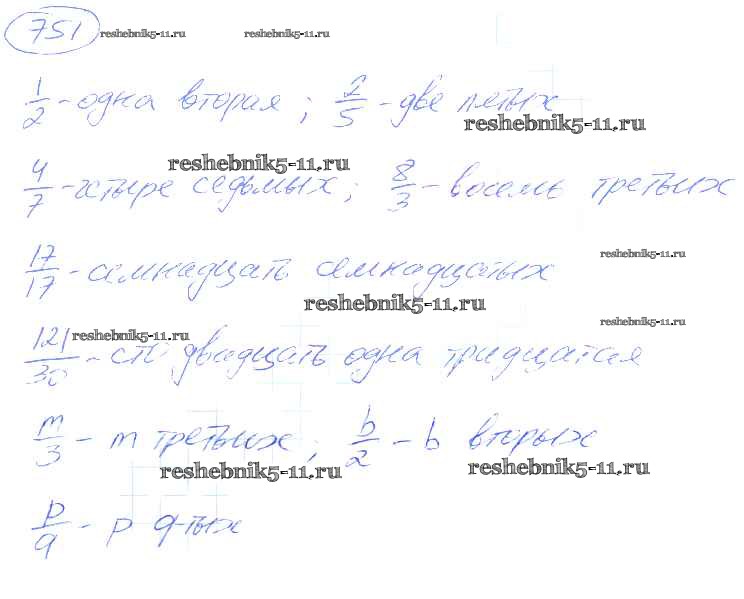 751 reshebnik5-11.ru reshebnik5-11.ru
1/2 - одна вторая ; 2/5 - две пятых
reshebnik5-11.ru
reshebnik5-11.ru
4/7 - четыре седьмых ; 8/3 - восемь третьих
reshebnik5-11.ru
17/17 - семнадцать семнадцатых
reshebnik5-11.ru
reshebnik5-11.ru
reshebnik5-11.ru
121/30 - сто двадцать одна тридцатая
m/3 - m третьих ; b/2 - b вторых
reshebnik5-11.ru reshebnik5-11.ru
p/q - p q-тых